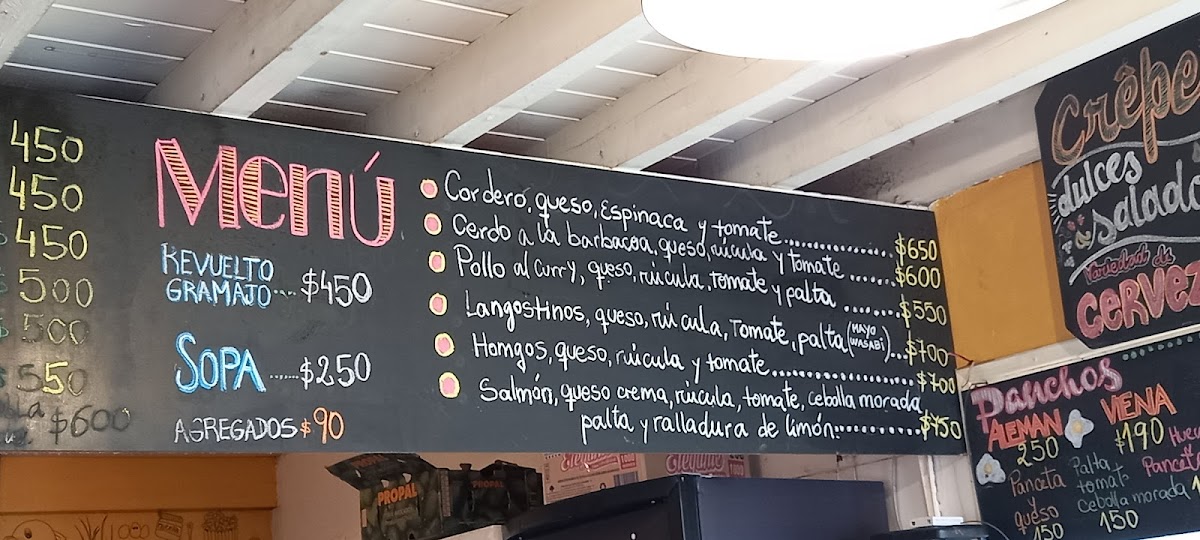 450
450
$ 450
$ 500
$ 500
$ 550
$600
Menú
REVUELTO
GRAMAJO..... $450
SOPA ...... $250
AGREGADOS $90
Cordero, queso, Espinaca y tomate............ $650
Cerdo a la barbacoa, queso, rúcula y tomate ...... $600
Pollo al curry, queso, rúcula, tomate y palta ......... $550
Langostinos, queso, rúcula, Tomate, palta (MAYO WASABI)... $700
Homgos, queso, rúcula y tomate.................. $700
Salmón, queso crema, rúcula, tomate, cebolla morada,
palta y ralladura de limón............ $750
Crêpe
dulces
salada
Variedad de
CERVEZ
Panchos
ALEMAN
250
Panceta
y
queso
150
VIENA
$190
Palta
tomate
cebolla morada
150
Huev
Panceta
PROPAL
PROPAL
Elegante
Elegante
1000